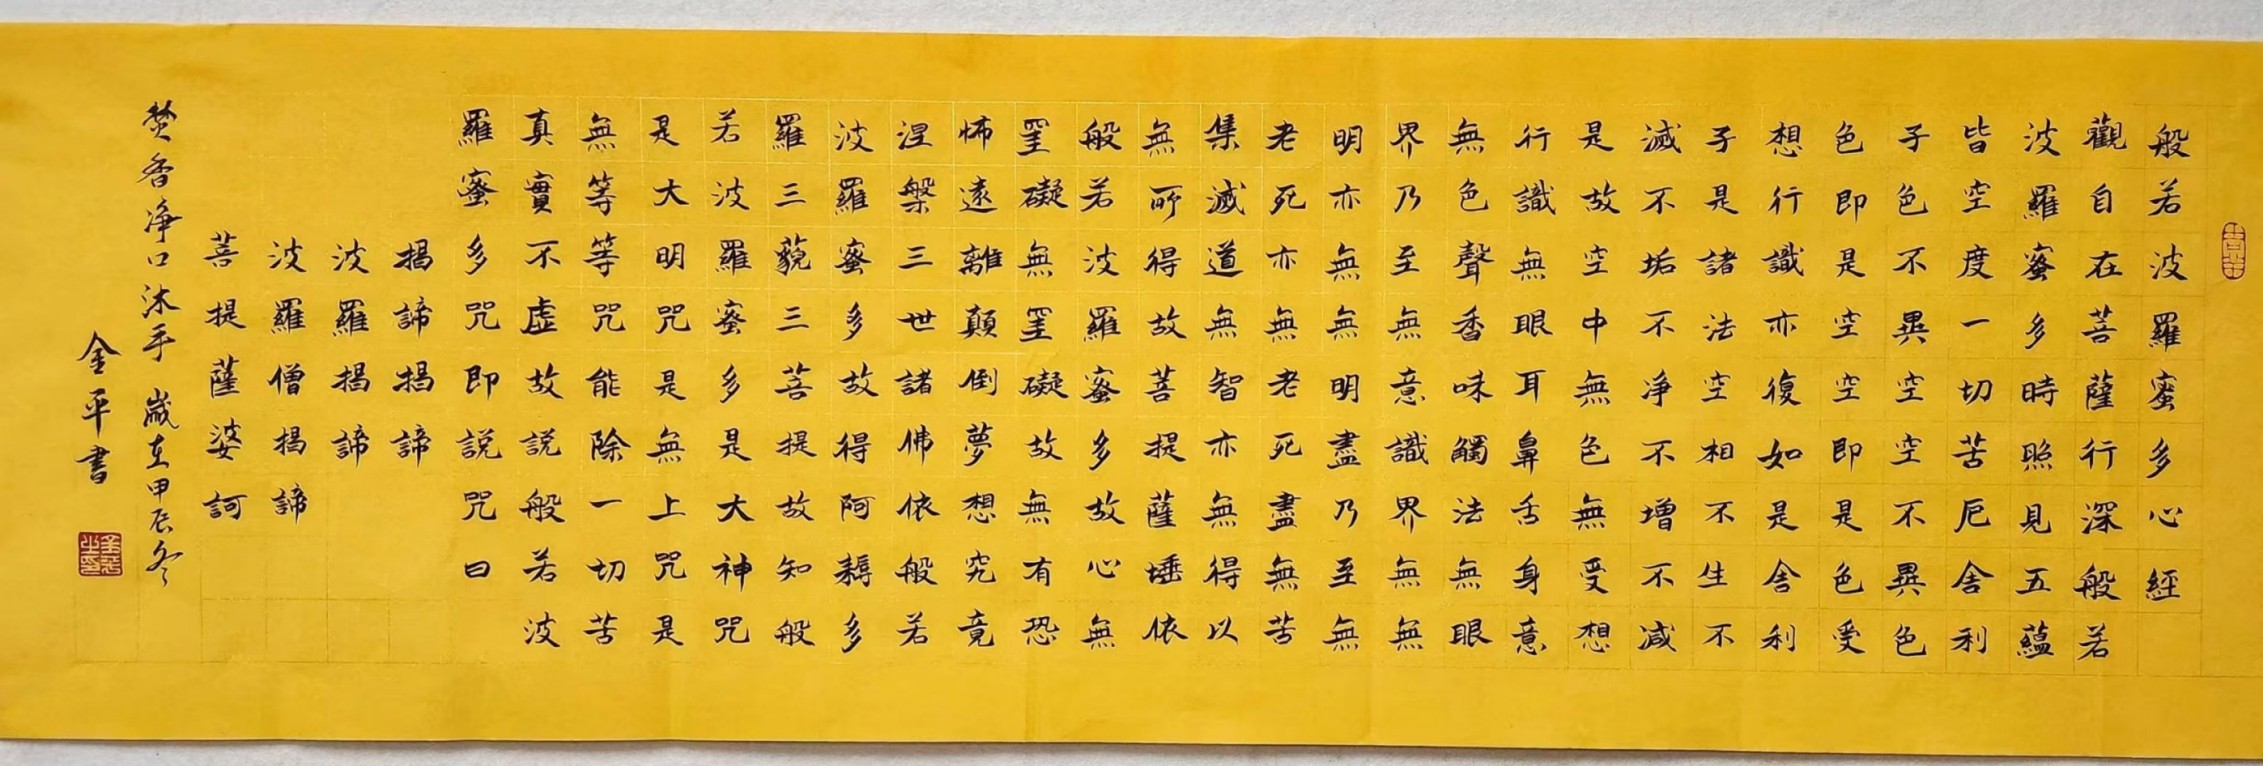 般若波羅蜜多心經
觀自在菩薩行深般若
波羅蜜多時照見五蘊
皆空度一切苦厄舍利
子色不異空空不異色
色即是空空即是色受
想行識亦復如是舍利
子是諸法空相不生不
滅不垢不净不增不減
是故空中無色無受想
行識無眼耳鼻舌身意
無色聲香味觸法無眼
界乃至無意識界無無
明亦無無明盡乃至無
老死亦無老死盡無苦
集滅道無智亦無得以
無所得故菩提薩埵依
般若波羅蜜多故心無
罣礙無罣礙故無有恐
怖遠離顛倒夢想究竟
涅槃三世諸佛依般若
波羅蜜多故得阿耨多
羅三藐三菩提故知般
若波羅蜜多是大神咒
是大明咒是無上咒是
無等等咒能除一切苦
真實不虛故説般若波
羅蜜多咒即説咒曰
揭諦揭諦
波羅揭諦
波羅僧揭諦
菩提薩婆訶
焚香净口沐手 歲在甲辰冬
金平書